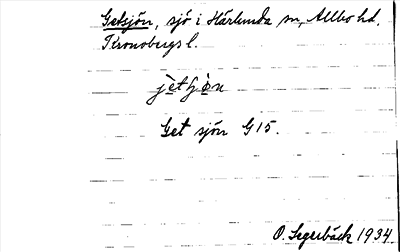 Getsjön, sjö i Härlunda sn, Allbo hd.
Kronobergs l.
Get sjön G15.
O. Segerbäck 1934.